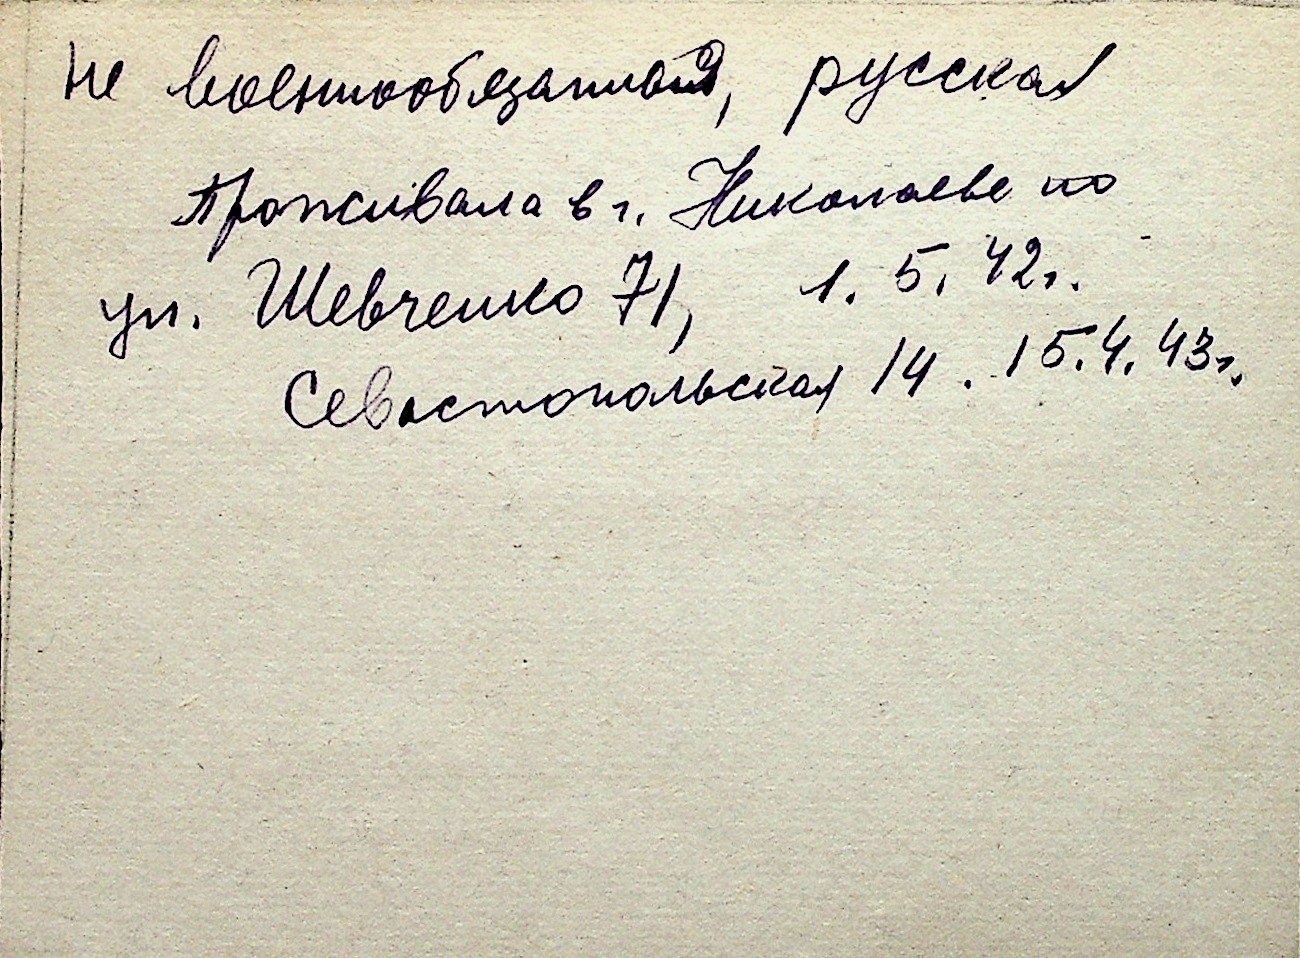 Не военнообязанная, русская
Проживала в г. Николаеве по
ул. Шевченко 71, 1. 5. 42г.
Севастопольская 14. 15.4.43г.